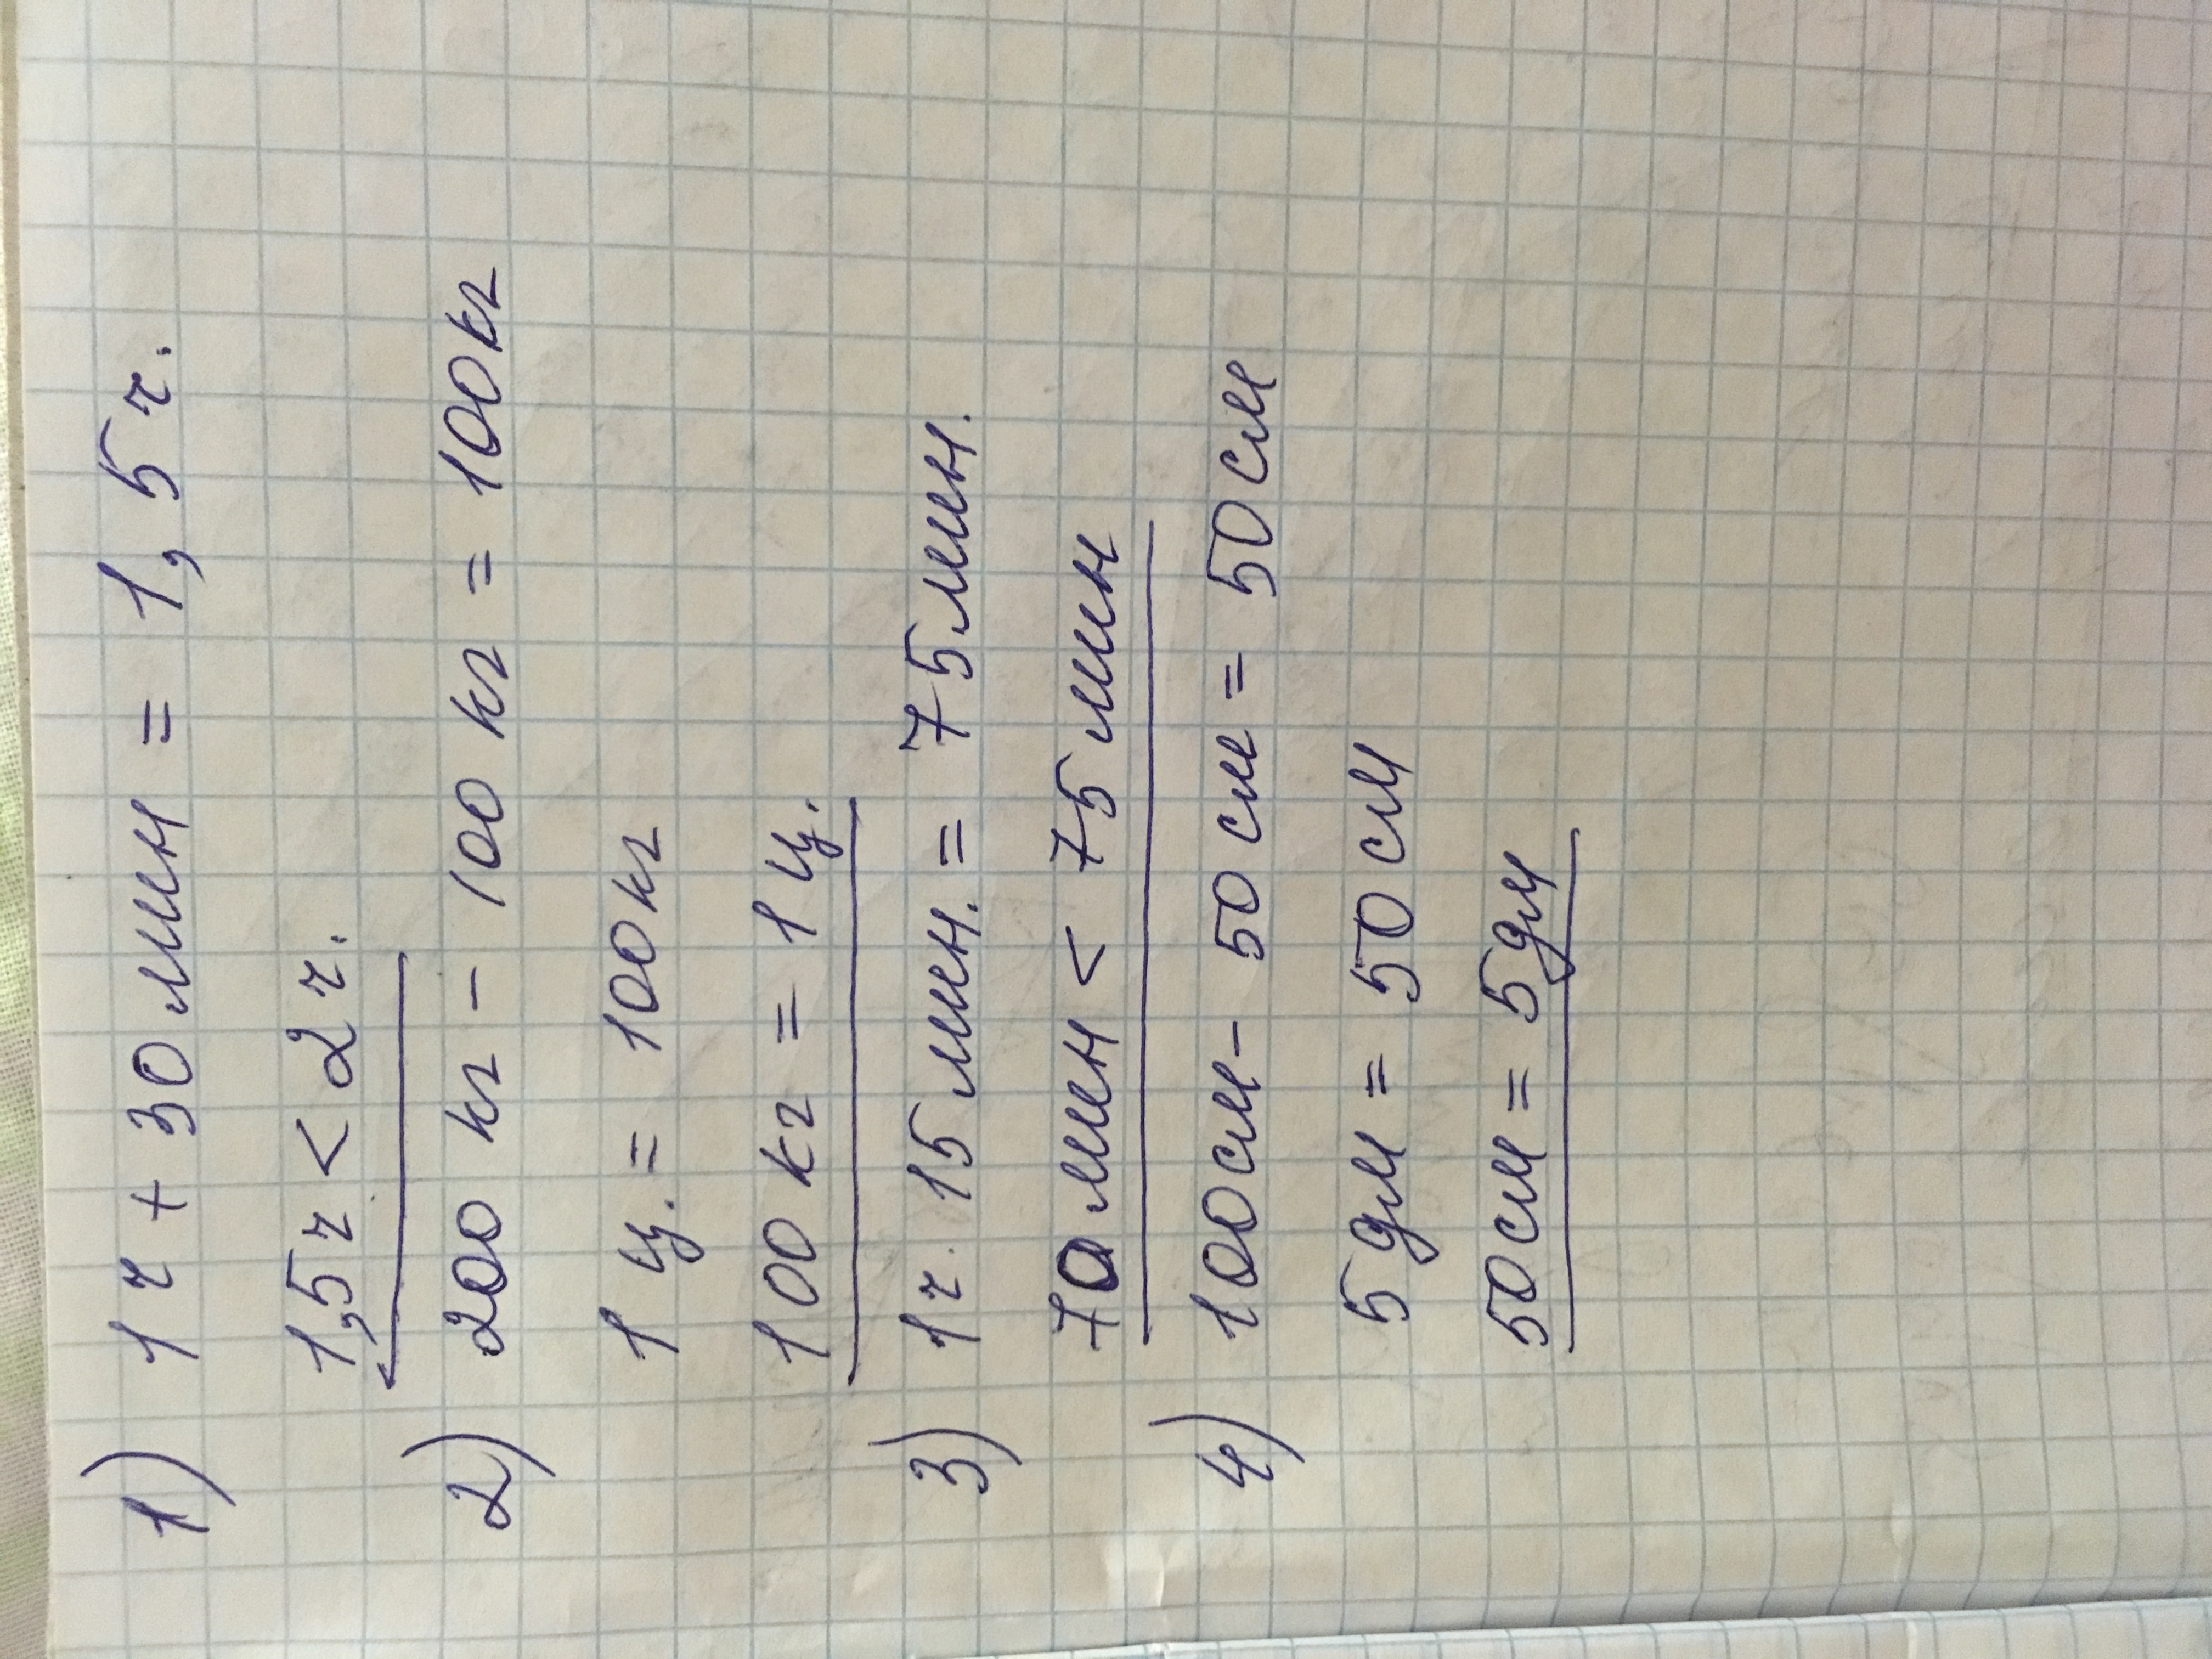 1) 1ч + 30мин = 1,5ч.
1,5ч < 2ч.
2) 200 кг - 100 кг = 100кг
1 ц. = 100кг
100 кг = 1 ц.
3) 1ч. 15мин. = 75мин.
70мин < 75мин
4) 100см - 50см = 50см
5 дм = 50см
50см = 5дм